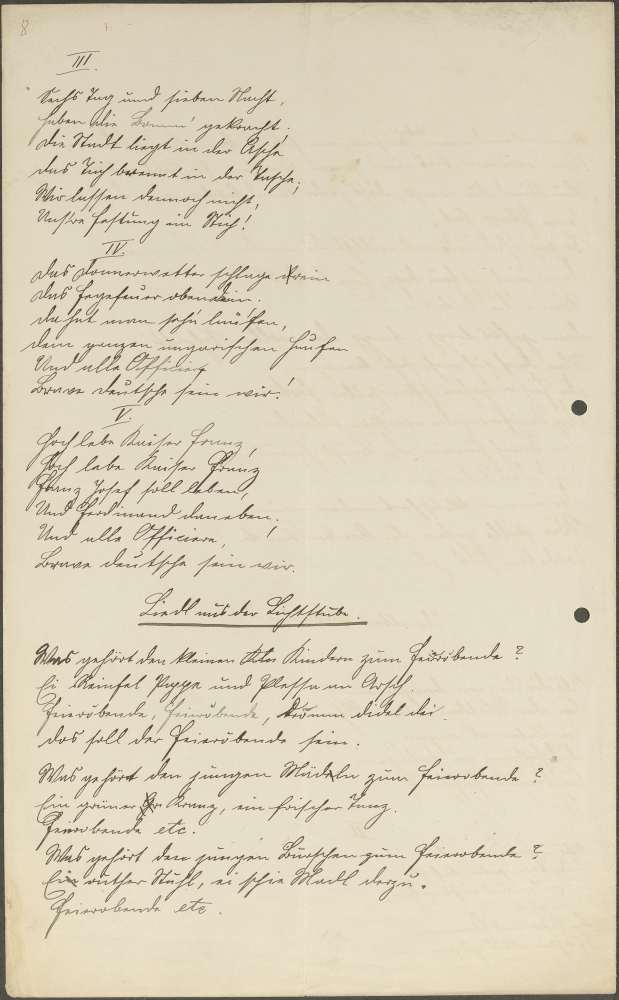 8
III.
Sechs Tag und sieben Nacht,
haben die Bomm' gekracht.
Die Stadt liegt in der Asche
das Tuch brennt in der Tasche;
Wir lassen dennoch nicht,
Uns're Festung im Stich!
IV.
Das Donnerwetter schlage drein
Das Fegefeuer obendrein.
da hat man sehn laufen,
dem ganzen ungarischen Haufen
Und alle Officiere
Brave deutsche sein wir!
V.
Hoch lebe Kaiser Franz,
Hoch lebe Kaiser Franz
Franz Josef soll leben,
Und Ferdinand daneben,
Und alle Officiere,
Brave deutsche sein wir.
Liedl aus der Lichtstube.
Was gehört den kleinen Kindern zum Feierobende?
Ei Reinfel Pappe und Plesse an Arsch.
Feierobende, Feierobende, didel dei
das soll der Feierobende sein.
Was gehört den jungen Mädeln zum Feierobende?
Ein grüner Kranz, ein frischer Tanz.
Feierobende etc.
Was gehört den jungen Burschen zum Feierobende?
Ein ruther Stuhl, ei schie Madl derzu.
Feierobende etc.